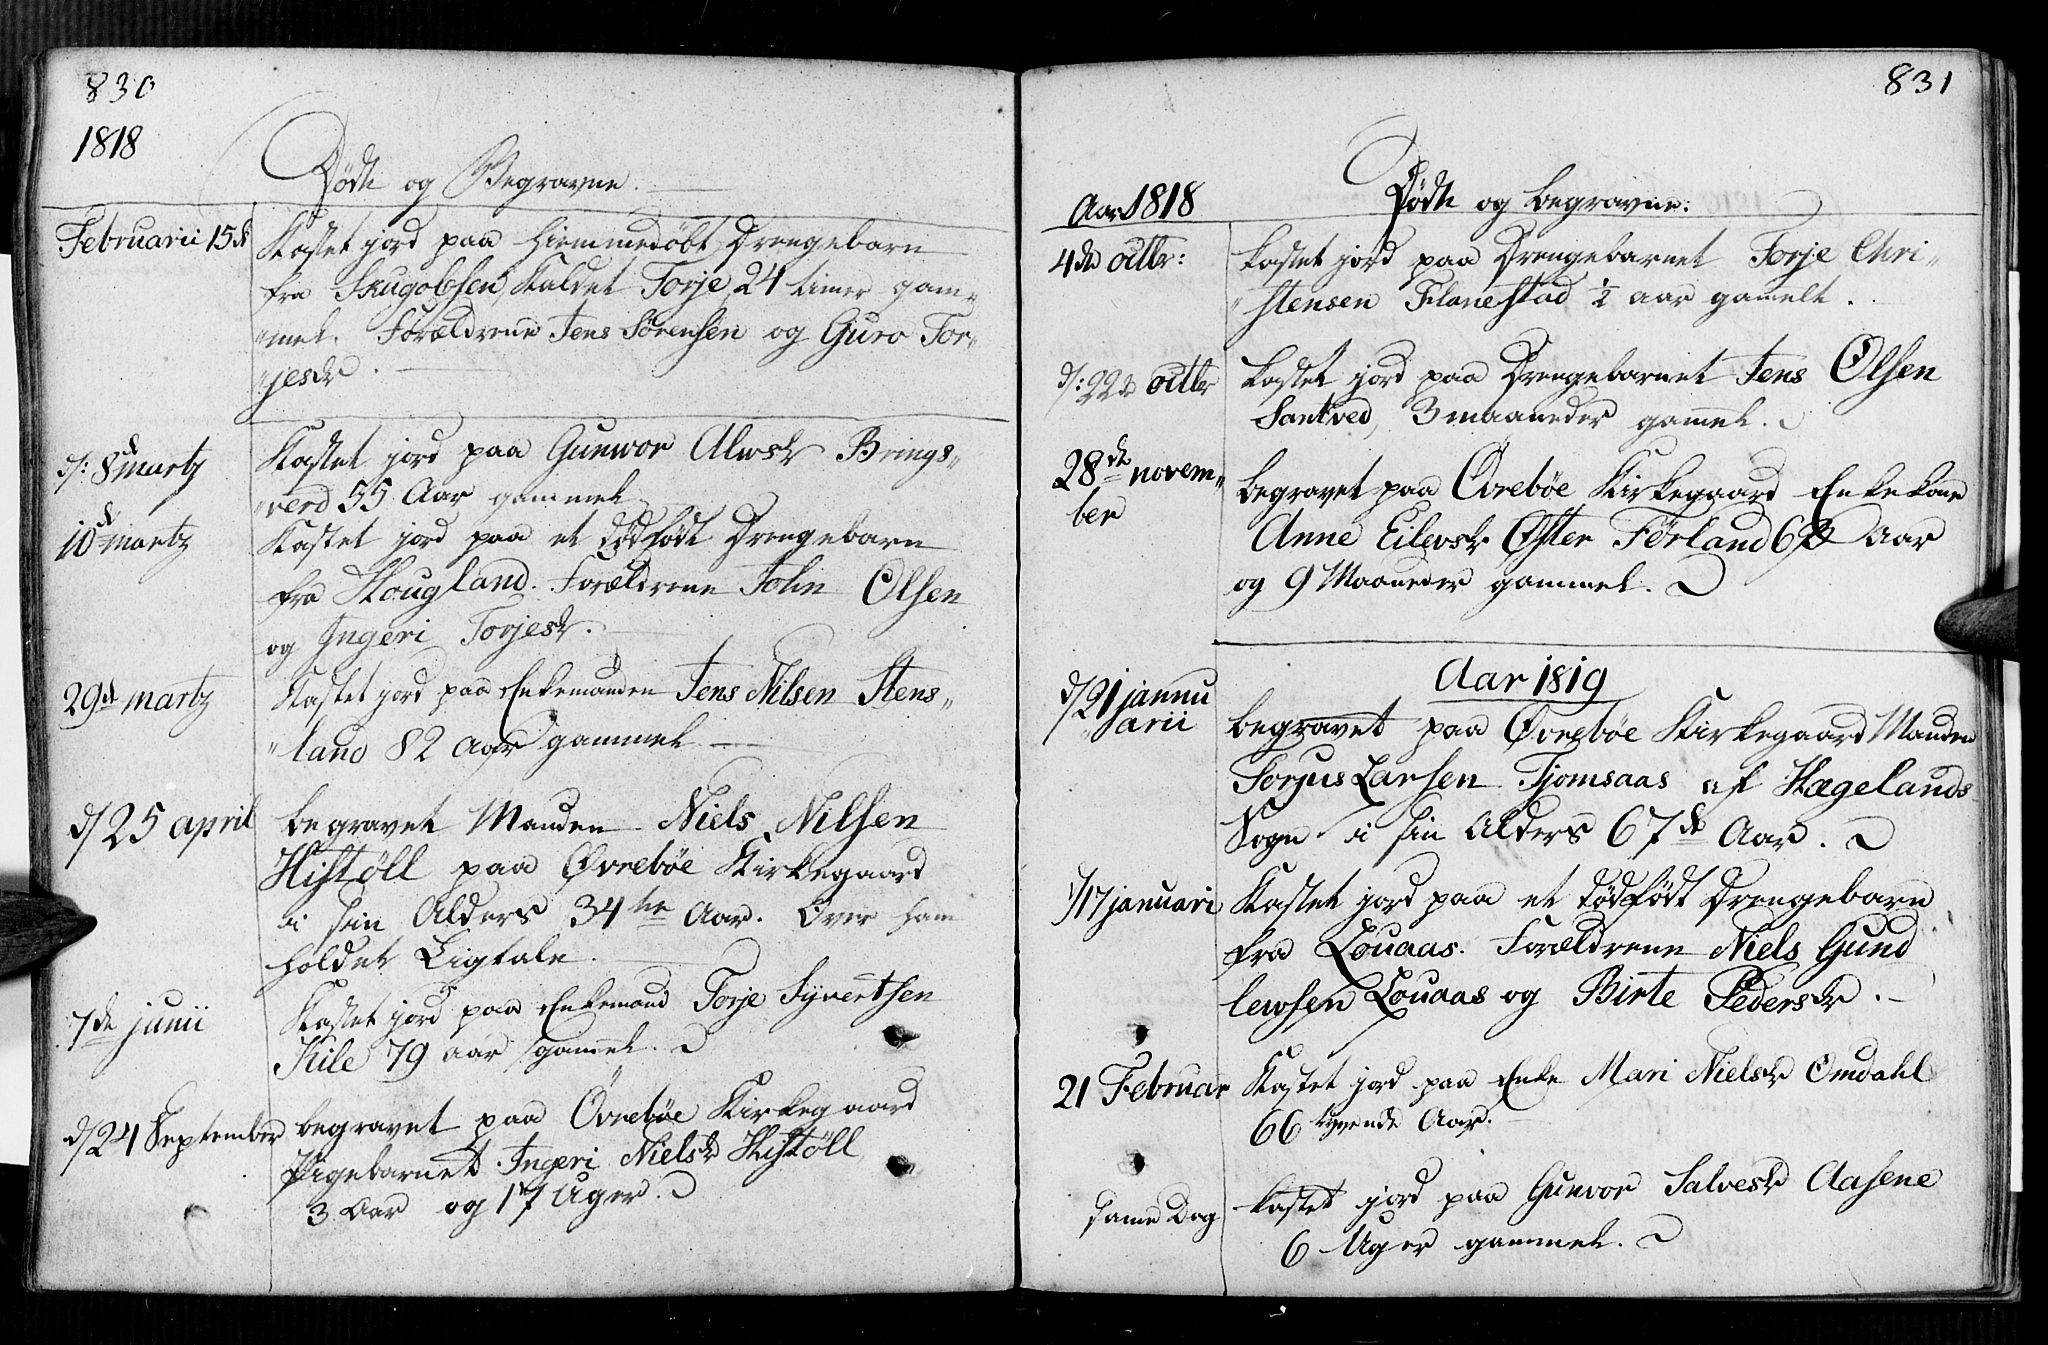 830
1818
Døde og Begravne.
Februarii 15de Kastet jord paa hiemmedøbt Drengebarn
fra Skugobsen kaldet Torje, 24 timer gam„
„melt. Forældrene Jens Sørensen og Guro Tor„
„jesdr.
d: 8de martz Kastet jord paa Gunwor Alwsdr Brings„
„verd 55 Aar gammel
10de martz Kastet jord paa et dødfødt Drengebarn
fra Hougland. Forældrene John Olsen
og Ingeri Torjesdr.
29de martz Kastet jord paa Enkemanden Jens Nilsen Stens„
„land 82 aar gammel
d/25 april begravet Manden Niels Nilsen
Histøll paa Øvrebøe Kirkegaard
i sin Alders 34te Aar. Over ham
holdet Ligtale.
7de junii Kastet jord paa Enkemand Torje Syvertsen
Kile 79 aar gamel.
d/24 September begravet paa Øvrebøe Kirkegaard
Pigebarnet Ingeri Nielsdr Histøll
3 Aar og 17 Uger.
831
Aar 1818 Døde og begravne.
4de octbr: kastet jord paa Drengebarnet Torje Chri„
„stensen Flanestad ½ aar gamelt.
d: 22de octbr kastet jord paa Drengebarnet Jens Olsen
Santved, 3 maaneder gamel.
28de novem„ begravet paa Øvrebøe Kirkegaard Enkekone
ber Anne Eilevsdr Øster Førland Aar
og 9 Maaneder gammel.
Aar 1819
d/21 jannu begravet paa Øvrebøe Kirkegaard Manden
„arii Torjus Larsen Tjomsaas af Hægelands
Sogn i sin Alders 67de Aar.
d/17 januari Kastet jord paa et dødfødt Drengebarn
fra Louaas. Forældrene Niels Gund
lewsen Louaas og Birte Pedersdr.
21 Februar Kastet jord paa Enke Mari Nielsdr Omdahl
66 tyvende Aar.
same Dag kastet jord paa Gunvor Salvesdr Aasene
6 Uger gammel.